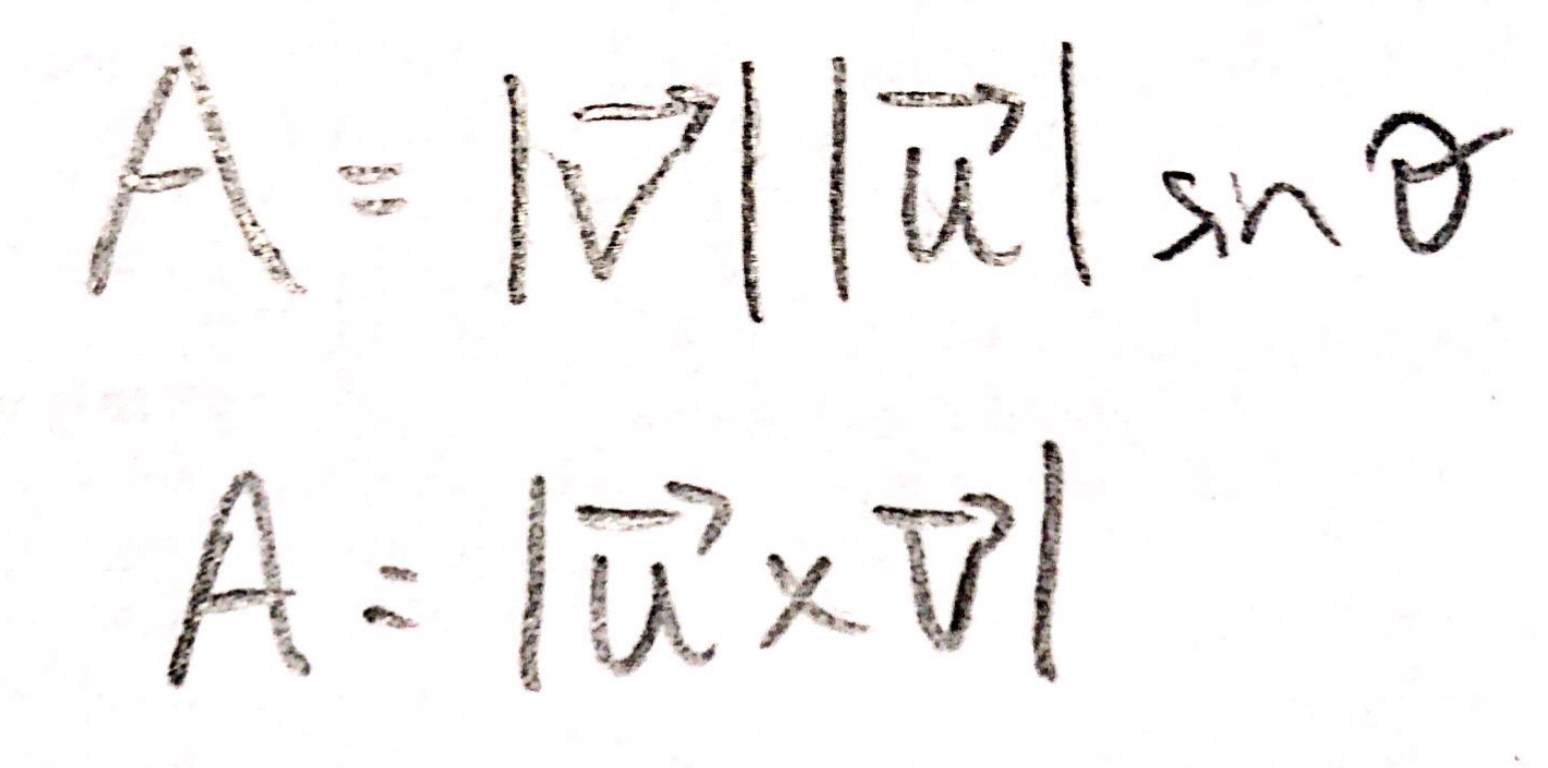 A = |v⃗||u⃗| sin θ
A = |u⃗ × v⃗|